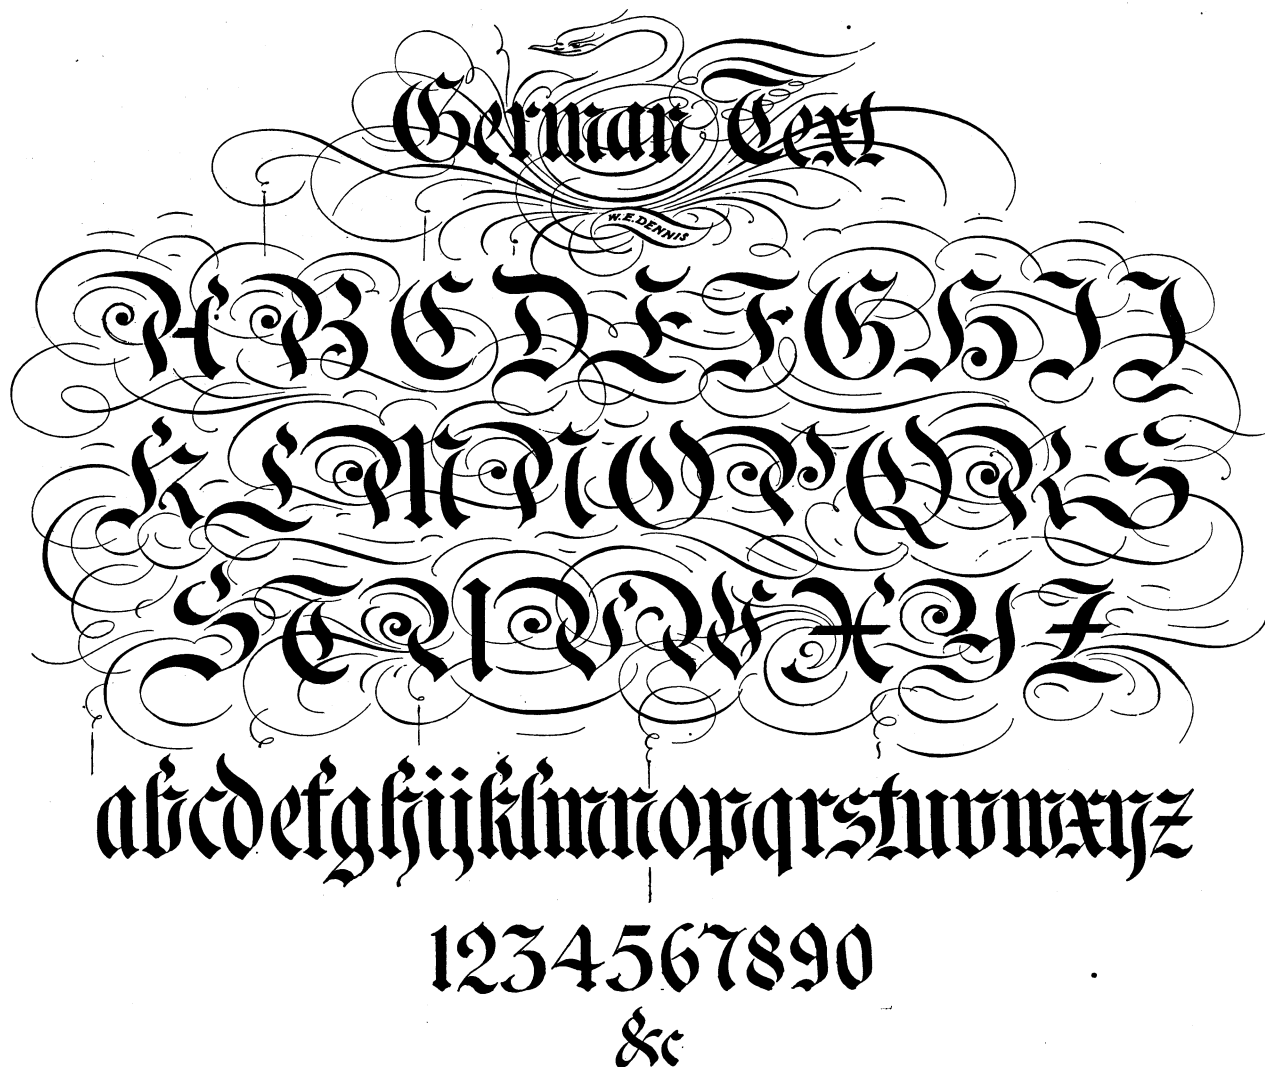 German Text
W.E.DENNIS
ABCDEFGHIJ
KLMNOPQRS
STUVWXYZ
abcdefghijklmnopqrstuvwxyz
1234567890
&c